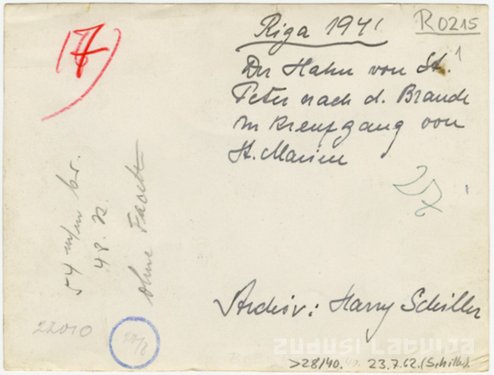 17)
Riga 1941
R0215
Der Hahn von St.
Peter nach d. Brande
im Kreuzgang von
St. Marien
27
54 m/m br.
48. h.
Ohne
22010
Archiv: Harry Schiller
zudusilatvija
>28/40. 23.7.62. (Schiller).